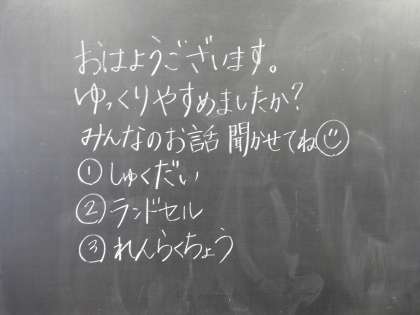 おはようございます。
ゆっくりやすめましたか？
みんなのお話 聞かせてね☺
①しゅくだい
②ランドセル
③れんらくちょう